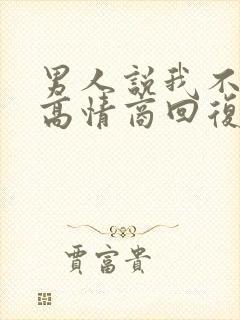 男人說我不
高情商回復
賈富貴